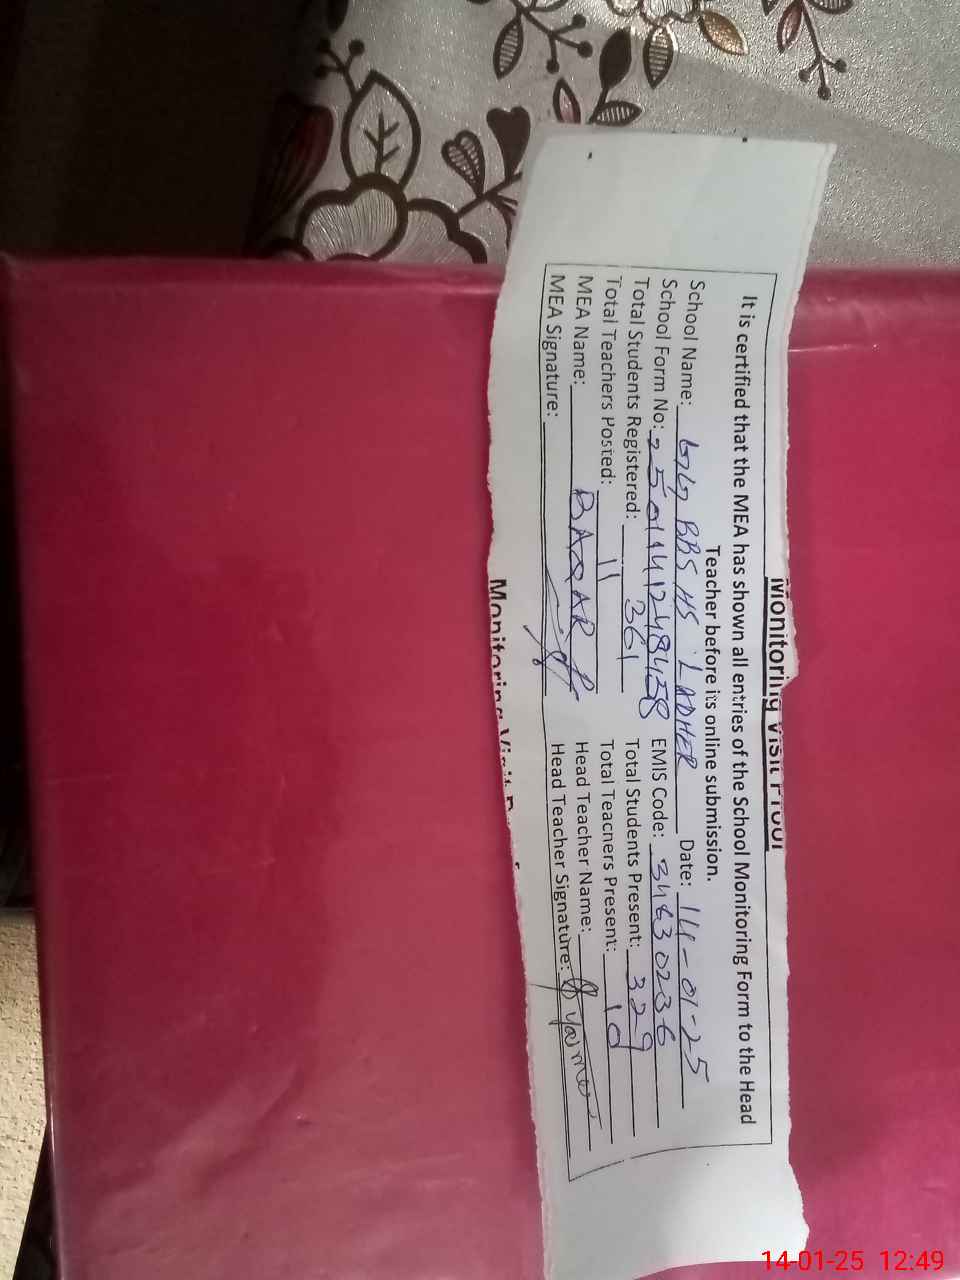 Monitoring Visit Proof
It is certified that the MEA has shown all entries of the School Monitoring Form to the Head
Teacher before its online submission.
School Name: GG BBS HS LADHER Date: 14-01-25
School Form No: 2501141248458 EMIS Code: 34630236
Total Students Registered: 361 Total Students Present: 329
Total Teachers Posted: 11 Total Teachers Present: 10
MEA Name: BAQAR Head Teacher Name:
MEA Signature: Head Teacher Signature:
Monitoring Visit
14-01-25 12:49